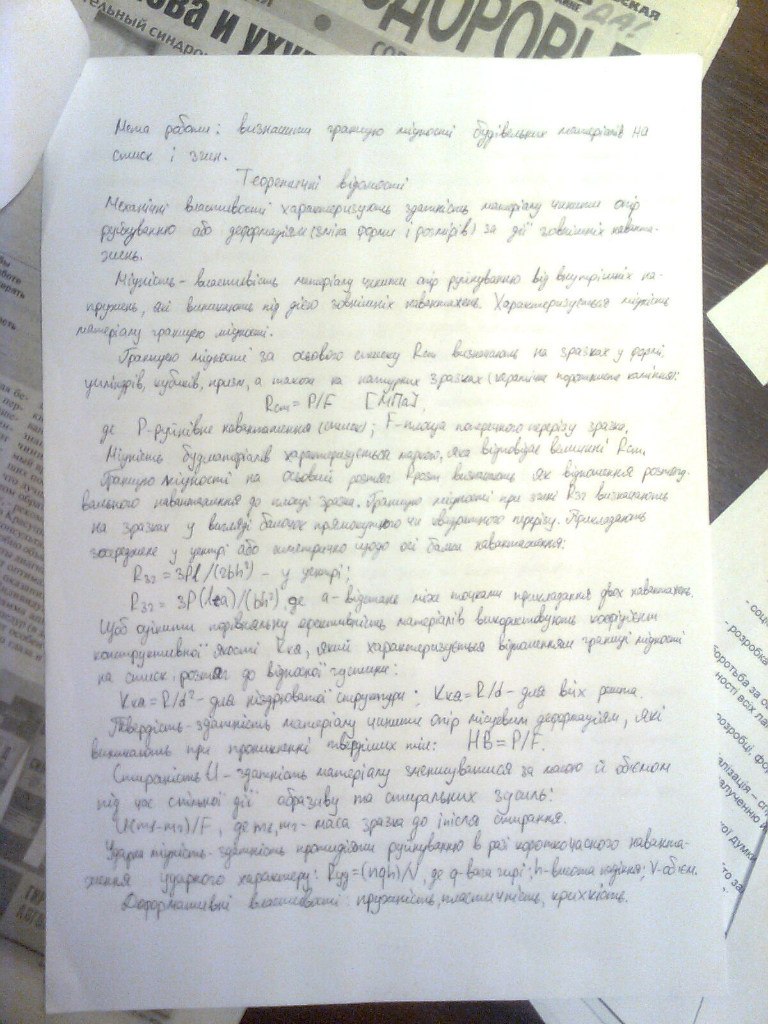 ДА!
ЗДОРОВЬЕ
ова и уху
тельный синдром
Мета роботи: визначити границю міцності будівельних матеріалів на
стиск і згин.
Теоретичні відомості
Механічні властивості характеризують здатність матеріалу чинити опір
руйнуванню або деформаціям (зміна форми і розмірів) за дії зовнішніх наванта-
жень.
Міцність - властивість матеріалу чинити опір руйнуванню від внутрішніх на-
пружень, які виникають під дією зовнішніх навантажень. Характеризується міцність
матеріалу границею міцності.
Границю міцності за осьового стиску Rст визначають на зразках у формі
циліндрів, кубиків, призм, а також на натурних зразках (керамічне порожнисте каміння):
Rст = P/F [МПа],
де P-руйнівне навантаження (стиск); F-площа поперечного перерізу зразка.
Міцність будматеріалів характеризується маркою, яка відповідає величині Rст.
Границю міцності на осьовий розтяг Rрозт визначають як відношення розтягу-
вального навантаження до площі зразка. Границю міцності при згині Rзг визначають
на зразках у вигляді балочок прямокутного чи квадратного перерізу. Прикладають
зосереджене у центрі або симетрично щодо осі балки навантаження:
Rзг = 3Pl/(2bh²) - у центрі;
Rзг = 3P(l-a)/(bh²), де a - відстань між точками прикладання двох навантажень.
Щоб оцінити порівняльну ефективність матеріалів використовують коефіцієнт
конструктивної якості Kкя, який характеризується відношенням границі міцності
на стиск і розтяг до відносної густини:
Kкя = R/d² - для ніздрюватої структури; Kкя = R/d - для всіх решта.
Твердість - здатність матеріалу чинити опір місцевим деформаціям, які
виникають при проникненні твердіших тіл: HB = P/F.
Стираність U - здатність матеріалу зменшуватися за масою й об'ємом
під час спільної дії абразиву та стиральних зусиль:
U=(m1-m2)/F, де m1, m2 - маса зразка до і після стирання.
Ударна міцність - здатність протидіяти руйнуванню в разі короткочасного наванта-
ження ударного характеру: Rуд=(nqh)/V, де q-вага гирі; h-висота падіння; V-об'єм.
Деформативні властивості пружність, пластичність, крихкість.